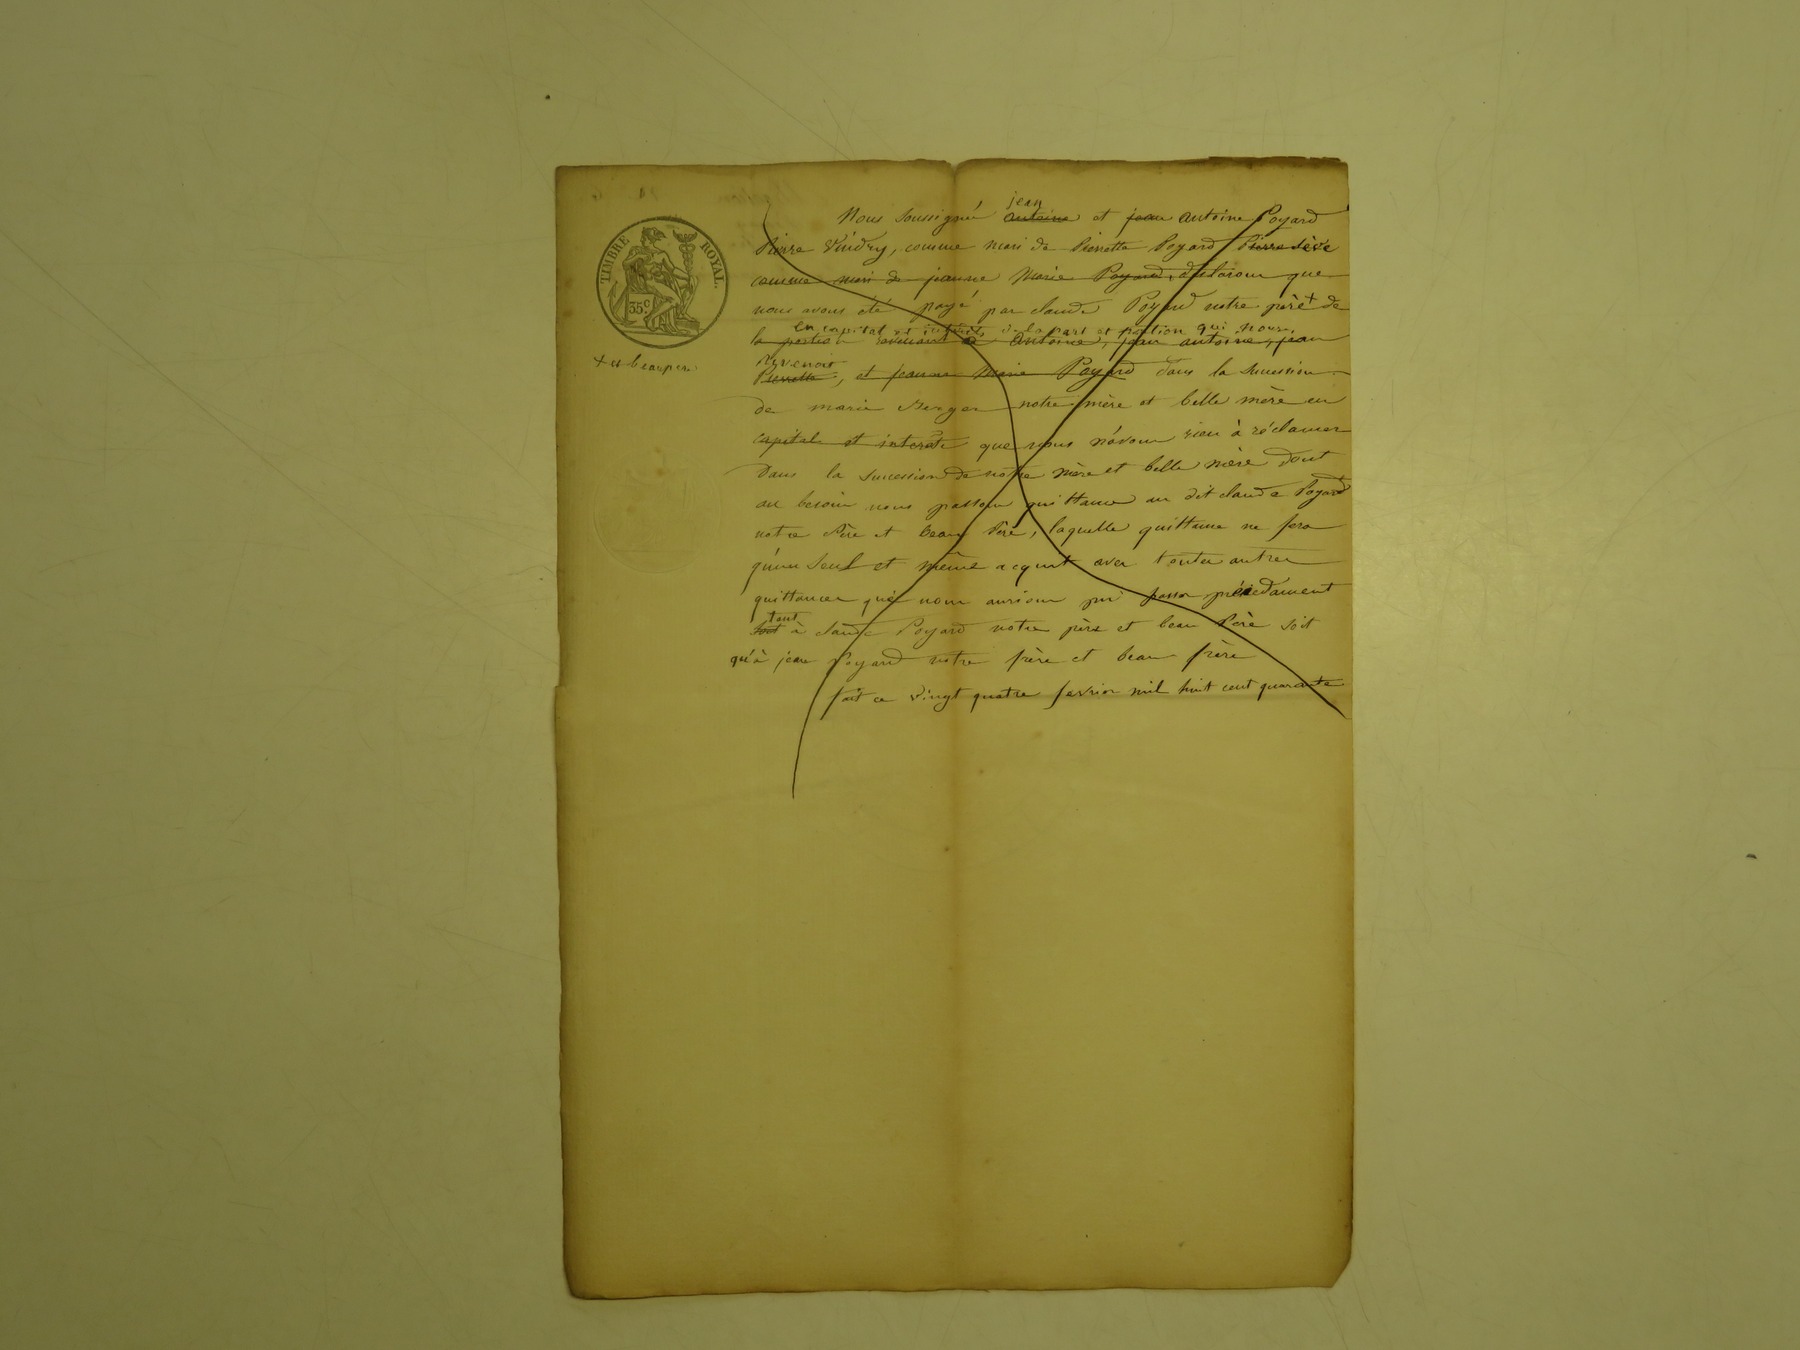 TIMBRE ROYAL.
35.c
jean
Nous soussignés antoine et jean antoine Poyard
Pierre Vindry, comme mari de Pierrette Poyard Pierre sève
comme mari de jeanne Marie Poyard, déclarons que
nous avons été payé par claude Poyard notre père + de
en capital et intérêts de la part et portion qui nous
la portion revenant à Antoine, jean antoine, jean
+ et beau père
Revenoit
Pierrette, et jeanne Marie Poyard dans la succession
de marie Berger notre mère et belle mère en
capital et interets que nous n'avons rien à réclamer
Dans la succession de notre mère et belle mère dont
au besoin nous passons quittance au dit claude Poyard
notre Père et Beau Père, laquelle quittance ne fera
qu'un Seul et même acquit avec toutes autres
quittances que nous aurions pu passer précédament
tant
soit à claude Poyard notre père et beau Père soit
qu'à jean Poyard notre frère et beau frère
fait ce vingt quatre fevrier mil huit cent quarante